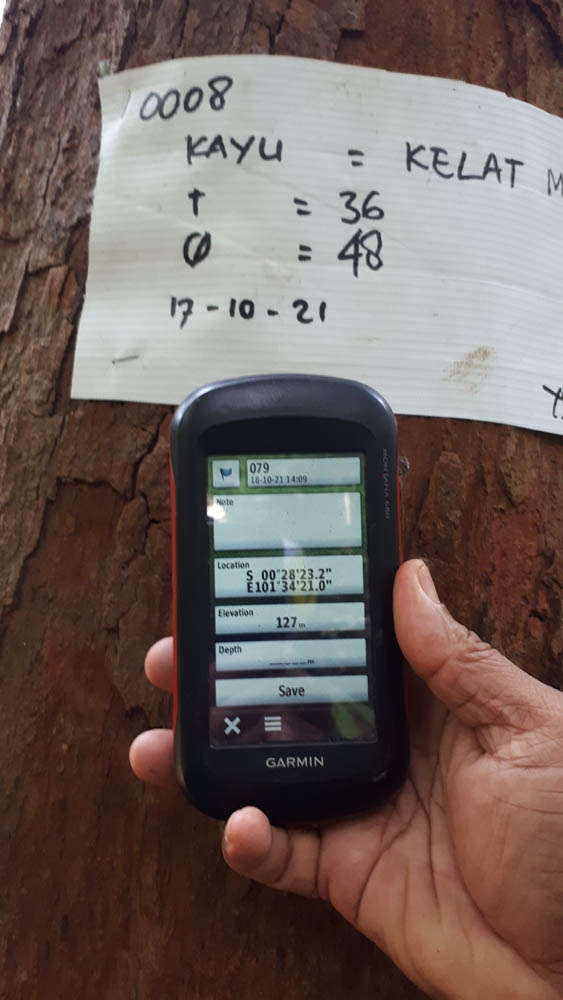 0008
KAYU = KELAT M
T = 36
Ø = 48
17-10-21
079
18-10-21 14:09
MONTANA 680
Note
Location
S 00°28'23.2"
E101°34'21.0"
Elevation
127 m
Depth
_____ m
Save
GARMIN